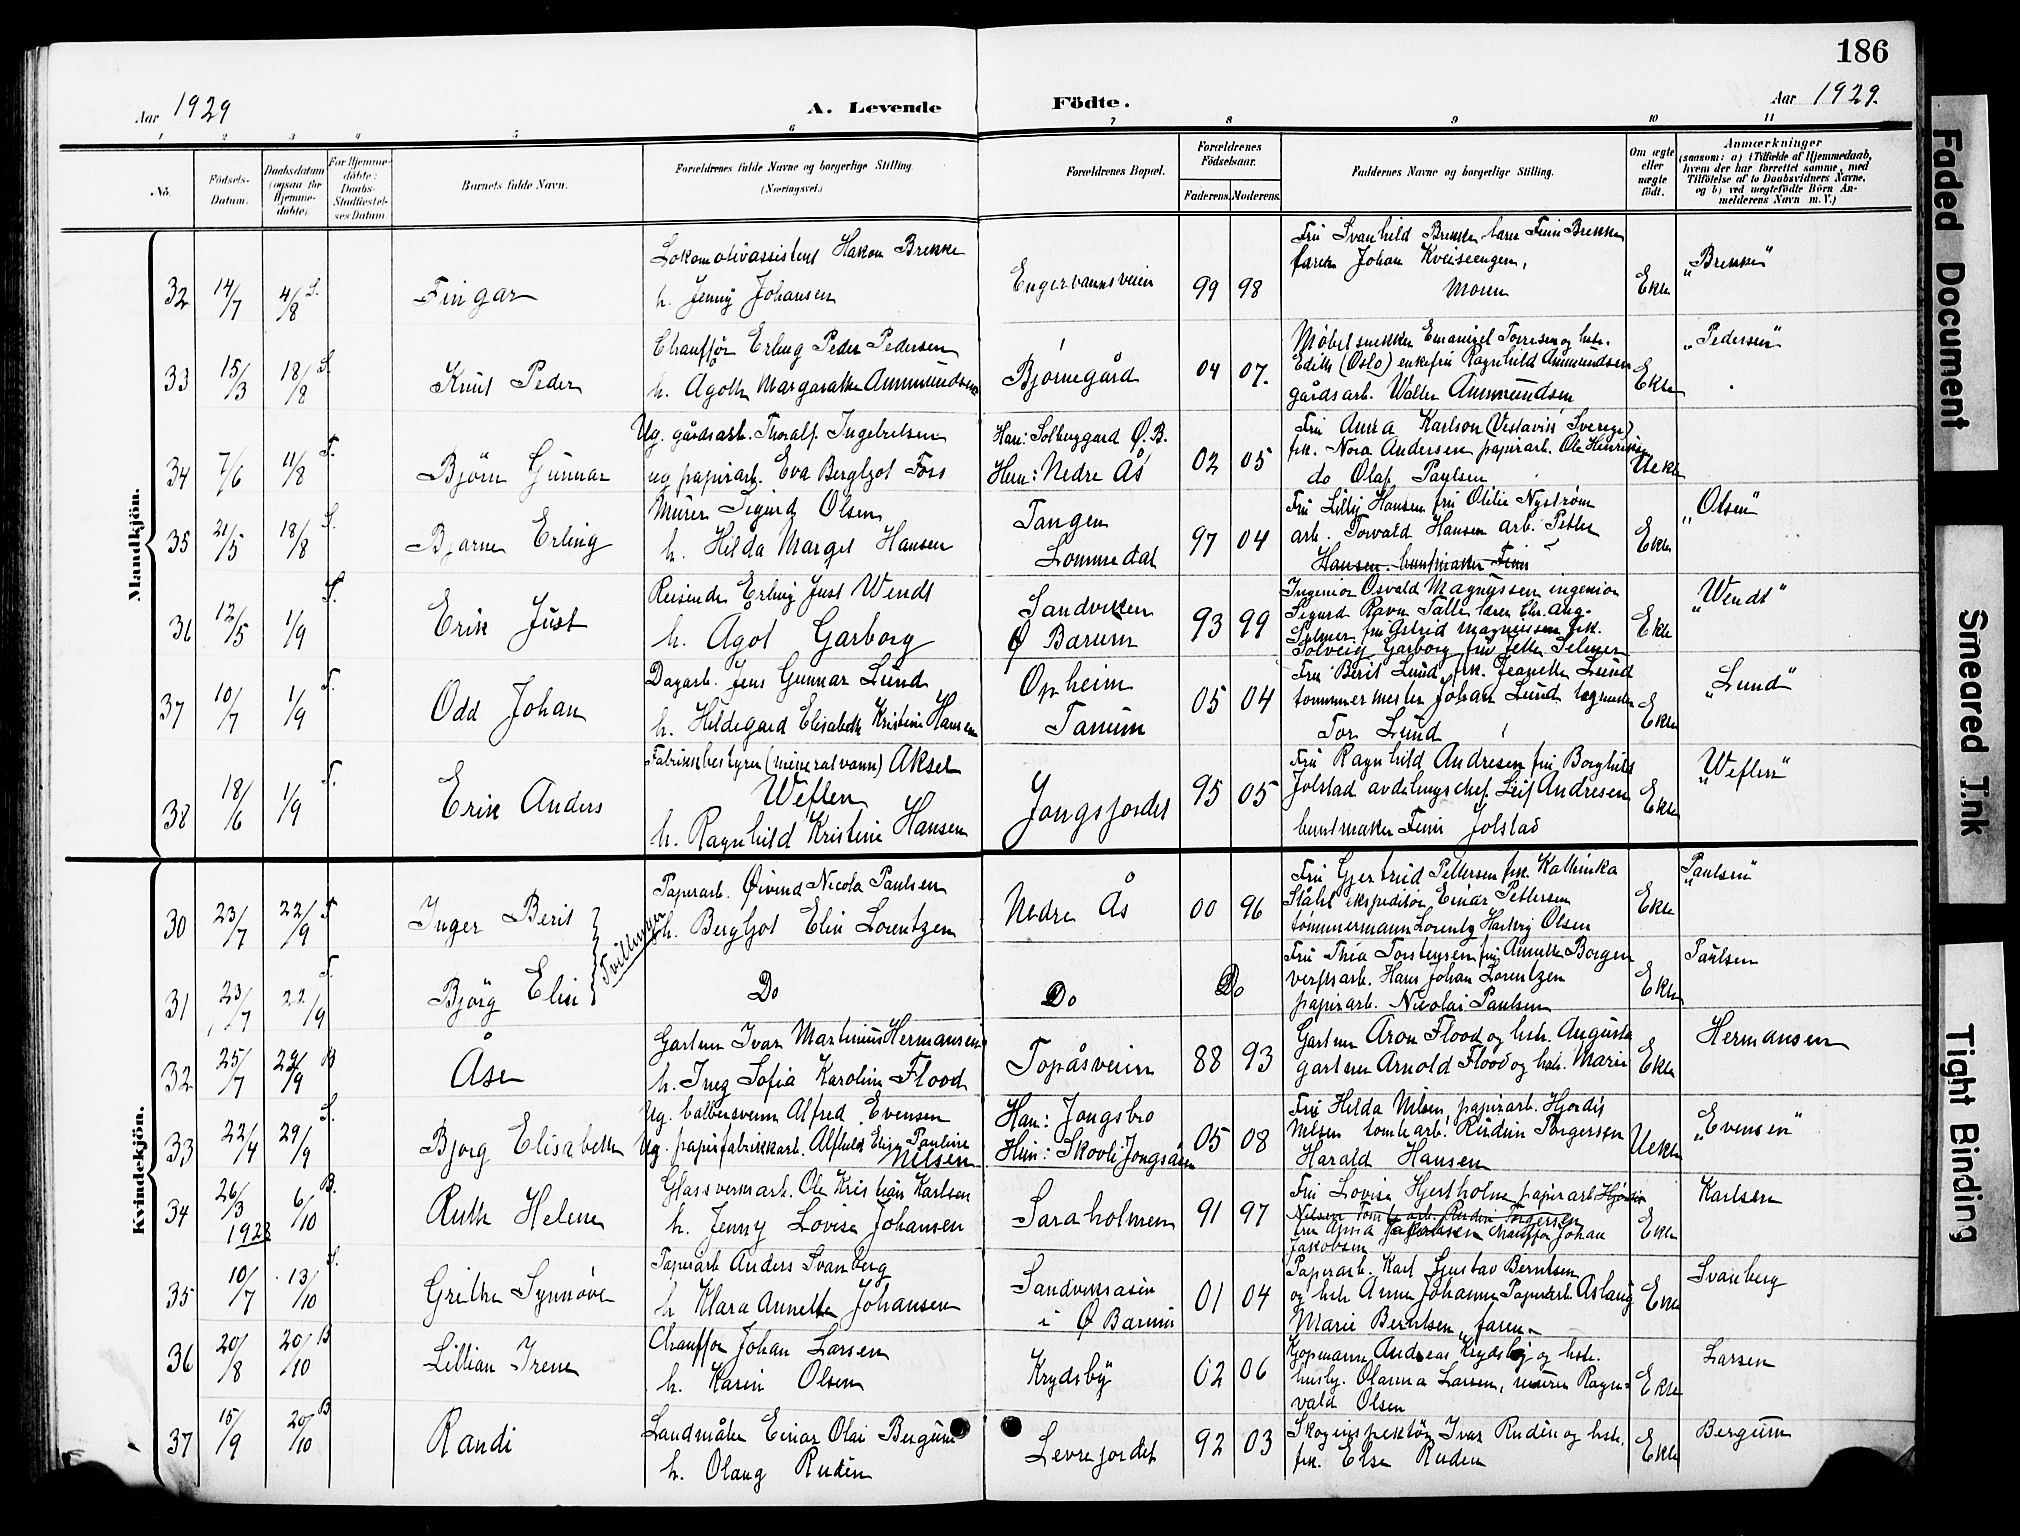 186
Aar 1929
A. Levende Födte.
Aar 1929.
1 2 3 4 5 6 7 8 9 10 11
No.
Födsels-
Datum.
Daabsdatum
(ogsaa for
Hjemme-
døbte).
For Hjemme-
döbte:
Daabs-
Stadfæstel-
ses Datum
Barnets fulde Navn.
Forældrenes fulde Navne og borgerlige Stilling.
(Næringsvei.)
Forældrenes Bopæl.
Forældrenes
Födselsaar.
Faderens. Moderens.
Faddernes Navne og borgerlige Stilling.
Om ægte
eller
uægte
født.
Anmærkninger
(saasom: a) i Tilfælde af Hjemmedaab,
hvem der har forrettet samme, med
Tilföielse af to Daabsvidners Navne,
og b) ved uægtefödte Börn An-
melderens Navn m. V.)
Mandkjön.
32 14/7 4/8 S. Fin gar
Lokomotivassistent Hakon Brekke
h. Jenny Johansen
Engervannsveien 99 98
Fru Svanhild Brekke lærer Finn Brekke
Johan
Moren
Ekte "Brekke"
33 15/3 18/8 S. Knut Peder
Chauffør Erling Peder Pedersen
h. Agoth Margarathe Ammundsen
Bjørnegård 04 07.
Møbelsnekker Emanuel Torresen og hstr.
Edith (Oslo) enkefru Ragnhild Ammundsen
gårdsarb. Walter Ammundsen
Ekte "Pedersen"
34 7/6 11/8 T. Bjørn Gunnar
Ug. gårdsarb. Thoralf Ingebretsen
ug papirarb. Eva Bergljot Foss
Han: Solbyggard Ø.B.
Hun: Nedre Ås 02 05
Fru Anna Karlson (Vestavik Sverige)
frk. Nora Andersen papirarb. Ole Henriksen
do Olaf Paulsen
Uekte
35 21/5 18/8 S. Bjarne Erling
Murer Sigurd Olsen
h. Hilda Margit Hansen
Tangen
Lommedal 97 04
Fru Lilly Hansen fru Otilie Nystrøm
arb. Torvald Hansen arb. Petter
Hansen. buntmaker Finn
Ekte "Olsen"
36 12/5 1/9 S. Erik Just
Reisende Erling Just Wendt
h. Ågot Garborg
Sandviken
Ø Bærum 93 99
Ingeniør Osvald Magnussen ingeniør
Sigurd Ravn Talle lærer Chr. Aug.
Selmer fru Astrid Magnussen frk.
Solveig Garborg fru Jette Selmer
Ekte "Wendt"
37 10/7 1/9 T. Odd Johan
Dagarb. Jens Gunnar Lund
h. Hildegard Elisabeth Kristine Hansen
Opheim
Tanum 05 04
Fru Berit Lund, frk. Jeanette Lund
tømmermester Johan Lund
Tor Lund
Ekte "Lund"
38 18/6 1/9 T. Erik Anders
Fabrikkbestyrer (mineralvann) Aksel
Weflen
h. Ragnhild Kristine Hansen
Jongsjordet 95 05
Fru Ragnhild Andresen fru Borghild
Jolstad avdelingschef Leif Andresen
buntmaker Finn Jolstad
Ekte "Weflen"
Kvindekjön.
30 23/7 22/9 T. Inger Berit
Tvillinger
Papirarb. Øivind Nicolai Paulsen
h. Bergljot Elin Lorentzen
Nedre Ås 00 96
Fru Gjertrud Pettersen frk. Kathinka
Ståhl ekspeditør Einar Pettersen
tømmermann Lorentz Hartvig Olsen
Ekte "Paulsen"
31 23/7 22/9 T. Bjørg Elin
Do Do Do
Fru Thea Torstensen fru Annette Borgen
verftsarb. Hans Johan Lorentzen
papirarb. Nicolai Paulsen
Ekte Paulsen
32 25/7 29/9 B Åse
Gartner Ivar Martinius Hermansen
h. Inez Sofia Karoline Flood
Topåsveien 88 93
Gartner Aron Flood og hstr. Augusta
gartner Arnold Flood og hstr. Marie
Ekte Hermansen
33 22/4 29/9 S. Bjørg Elisabeth
Ug. Alfred Evensen
Ug. papirfabrikkarb. Alfhild Elise Pauline
Nilsen
Han: Jongsbro
Hun: Skovli Jongsåsen 05 08
Fru Hilda Nilsen, papirarb. Hjørdis
Nilsen tomtearb. Rudin Torgersen
Harald Hansen
Uekte "Evensen"
34 26/3 1928 6/10 B. Ruth Helene
Glassverksarb. Ole Kristian Karlsen
h. Jenny Lovise Johansen
Saraholmen 91 97
Fru Lovise Hjertholm papirarb Hjørdis
Nilsen Tomtearb. Rudin Torgersen
fru Anna Jakobsen Chauffør Johan
Jakobsen
Ekte Karlsen
35 10/7 13/10 S. Grethe Synnøve
Papirarb Anders Svanberg
h Klara Annette Johansen
Sandviksåsen
i Ø Bærum 01 04
Papirarb. Karl Gustav Berntsen
og hstr Anna Johanne Papirarb. Aslaug
Marie Berntsen, faren
Ekte Svanberg
36 20/8 20/10 B Lillian Irene
Chauffør Johan Larsen
h. Karin Olsen
Krydsby 02 06
Kjøpmann Andreas Krydsby og hstr.
husby. Olanna Larsen, murer Ragn-
vald Olsen
Ekte Larsen
37 15/9 20/10 B Randi
Landmåler Einar Olai Bergum
h. Olaug Rudin
Levrejordet 92 03
Skoginspektør Ivar Rudin og hstr.
frk. Else Rudin
Ekte Bergum
Faded Document
Smeared Ink
Tight Binding